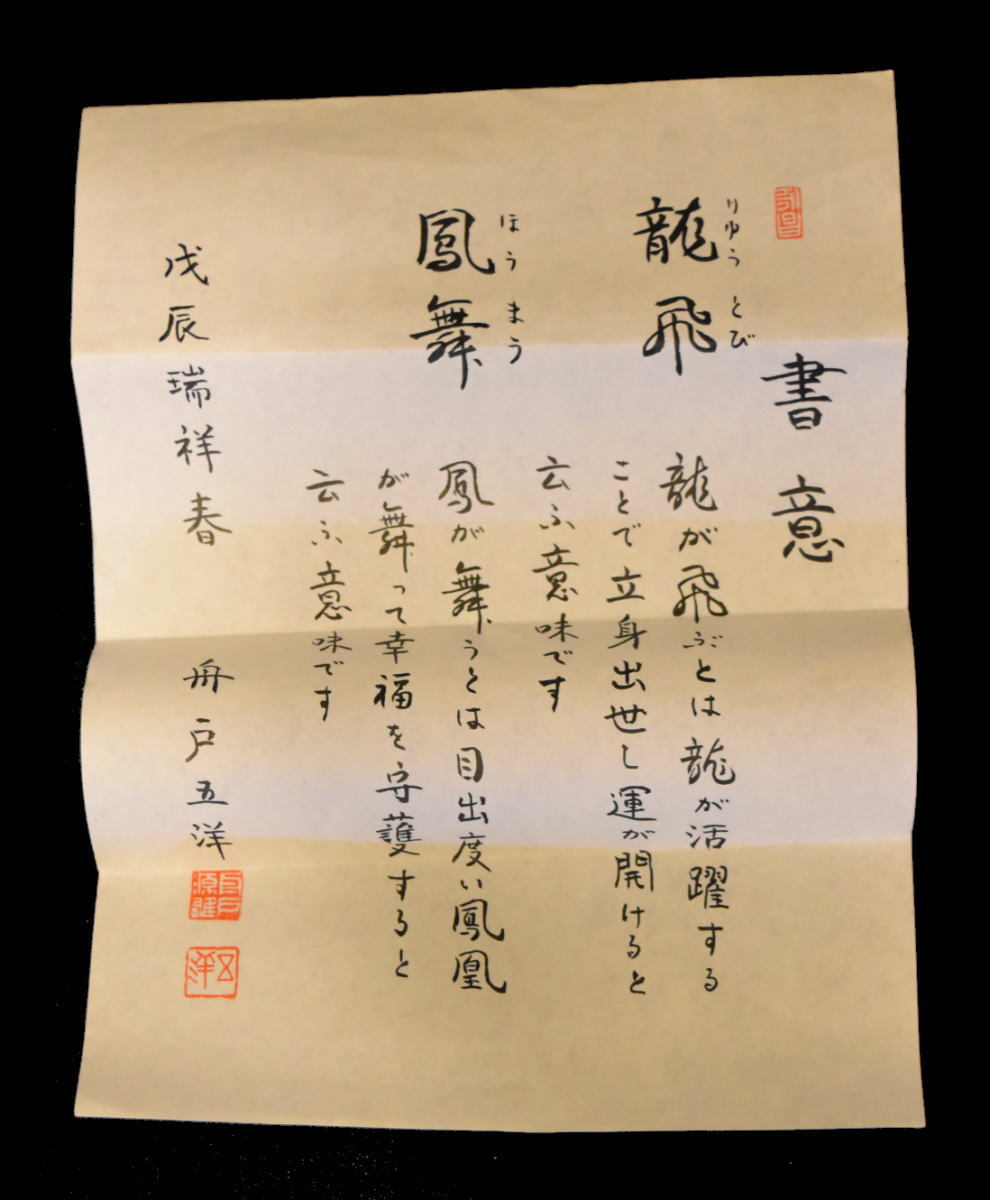 書意
りゅう とび
龍飛
龍が飛ぶとは龍が活躍する
ことで立身出世し運が開けると
云ふ意味です
ほう まう
鳳舞
鳳が舞うとは目出度い鳳凰
が舞って幸福を守護すると
云ふ意味です
戊辰瑞祥春
舟戸五洋
五洋